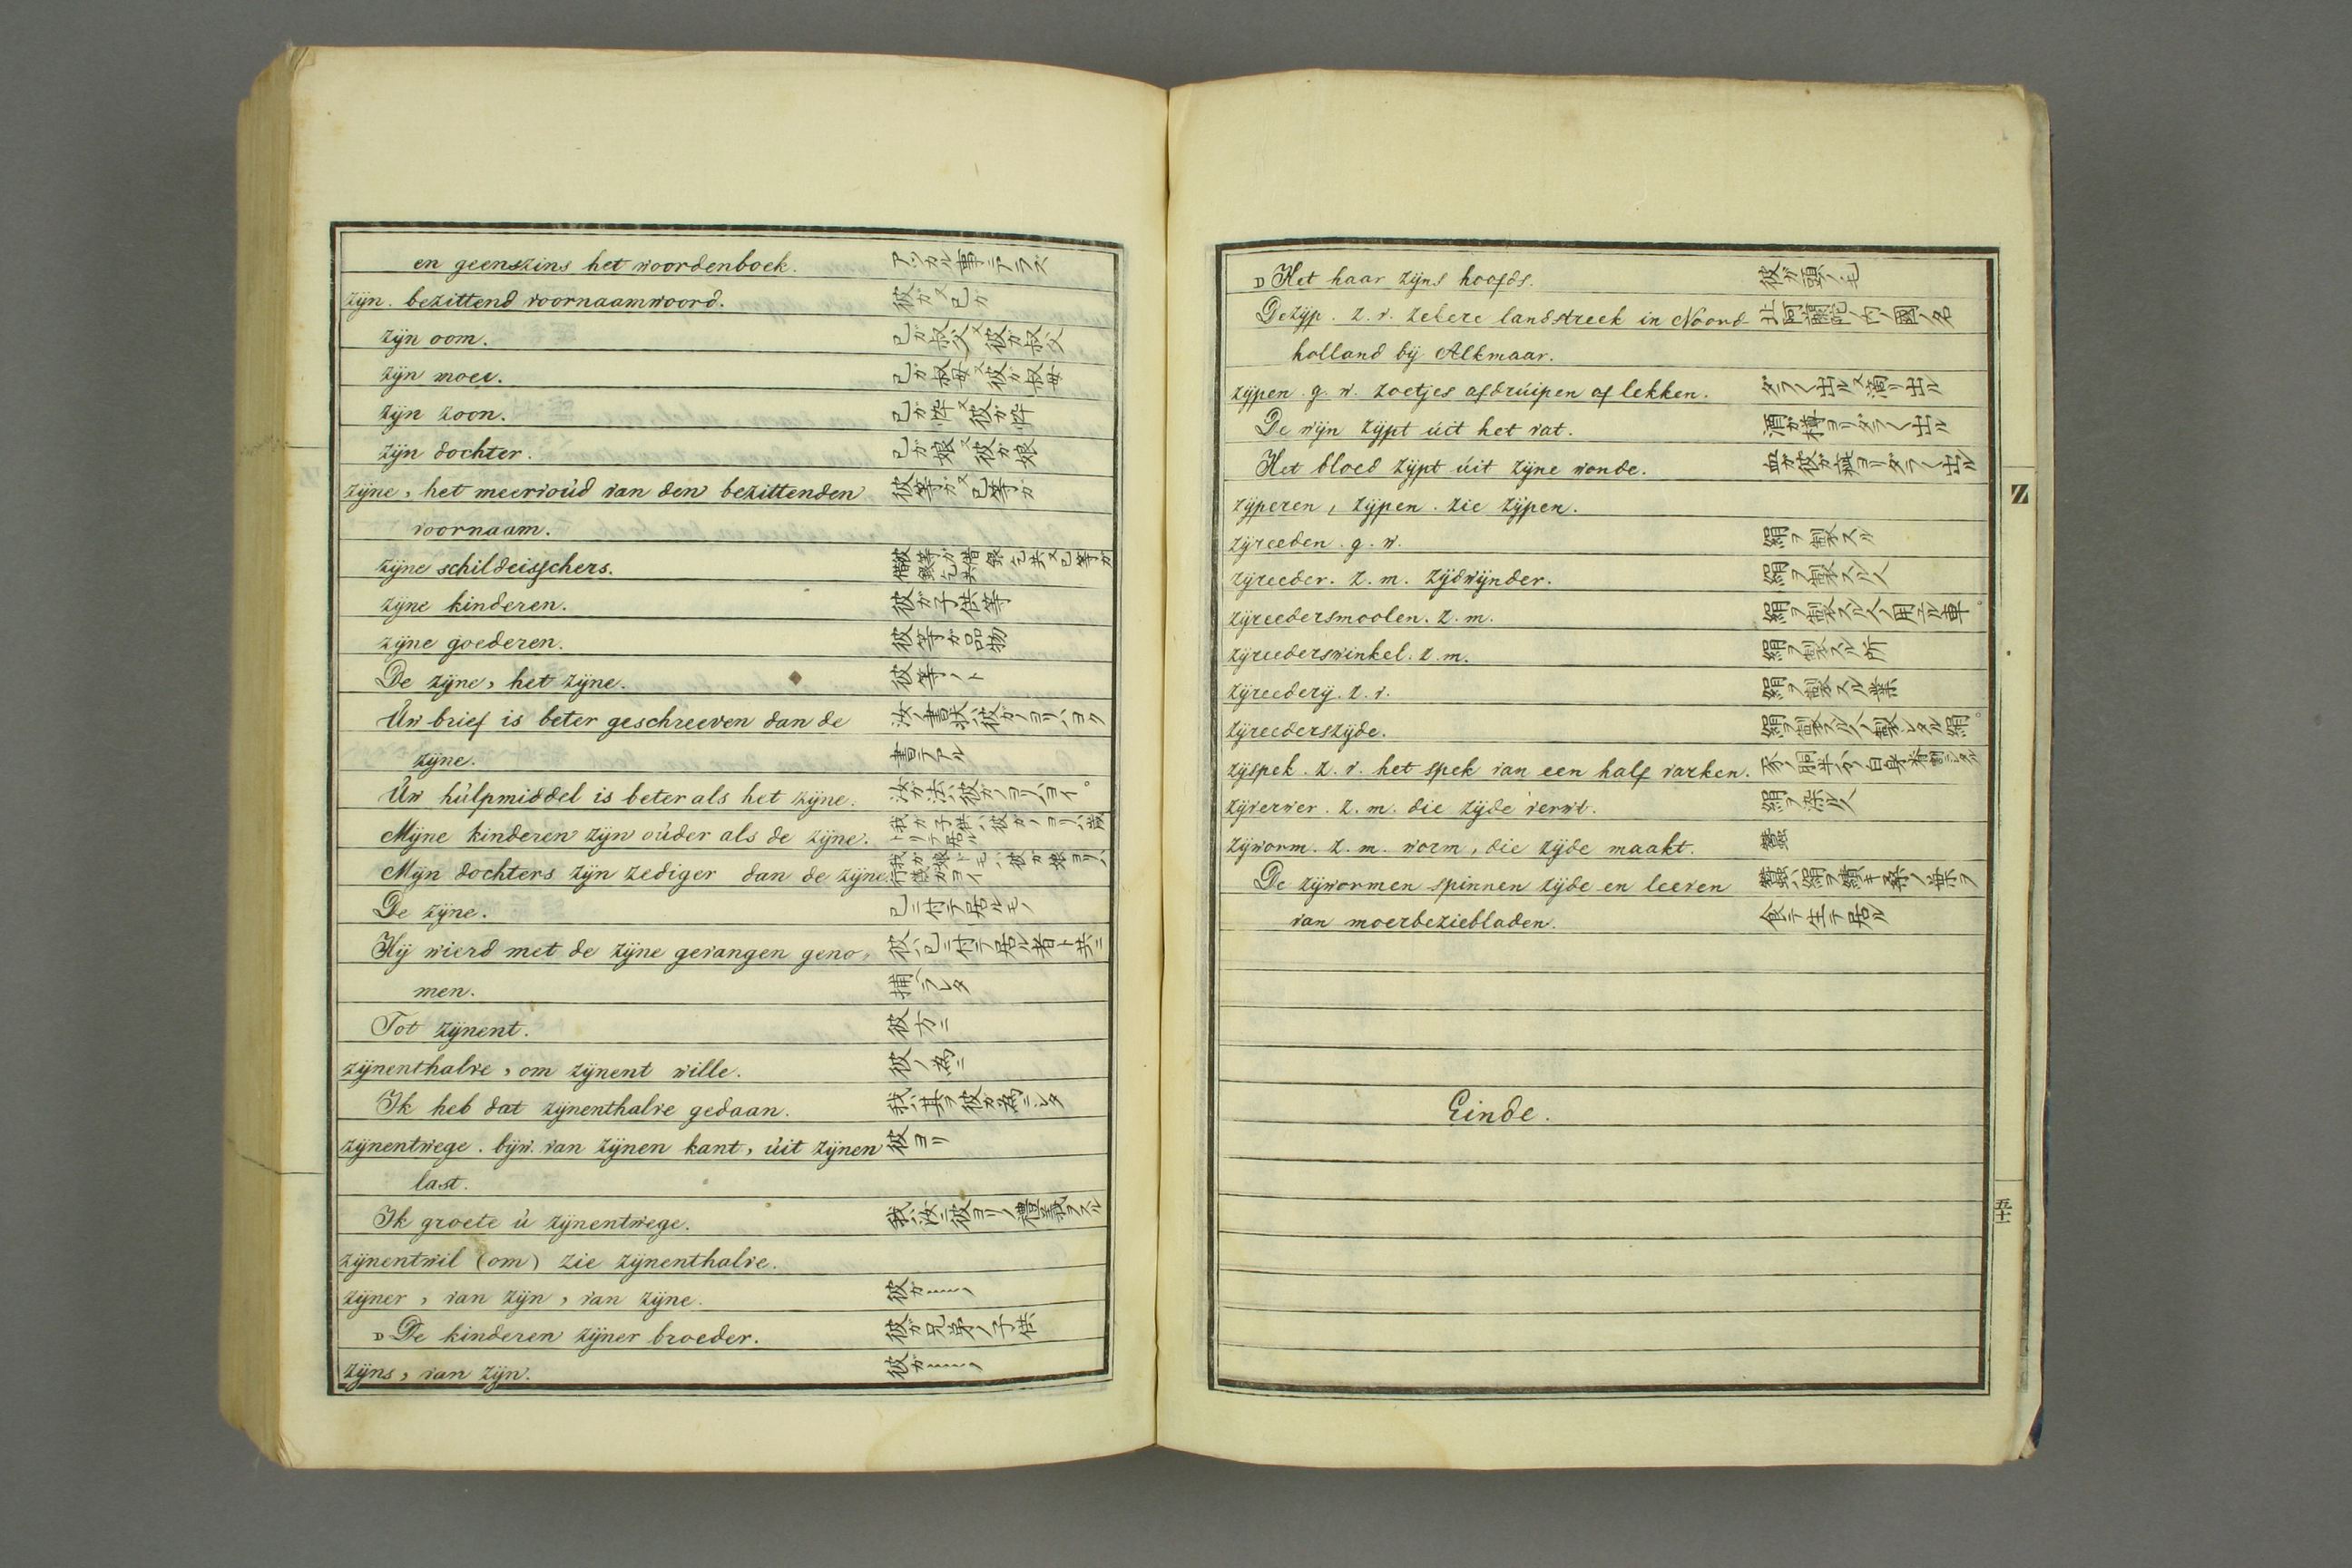 en geenszins het woordenboek.
zijn. bezittend voornaamwoord. 彼ガ又己ガ
zijn oom. 己ガ叔父又彼ガ叔父
zijn moei. 己ガ叔母又彼ガ叔母
zijn zoon. 己ガ忰又彼ガ忰
zijn dochter. 己ガ娘又彼ガ娘
zijne, het meervoúd van den bezittenden 彼等ガ又己等ガ
voornaam.
zijne schildeisschers.
zijne kinderen. 彼ガ子供等
zijne goederen. 彼等ガ品物
De zijne, het zijne. 彼等ノト
Úw brief is beter geschreeven dan de 汝ノ書状ハ彼ガノヨリハヨク
zijne. 書テアル
Úw húlpmiddel is beter als het zijne. 汝ガ法ハ彼ガノヨリハヨイ。
Mijne kinderen zijn oúder als de zijne. 我ガ子供ハ彼ガノヨリハ歳トリテ居ル
Mijn dochters zijn zediger dan de zijne. 我ガ娘ドモハ彼ガ娘ヨリハ行儀ガヨイ
De zijne. 己ニ付テ居ルモノ
Hij wierd met de zijne gevangen geno- 彼ハ己ニ付テ居ル者ト共ニ
men. 捕ヘラレタ
Tot zijnent. 彼方ニ
zijnenthalve, om zijnent wille. 彼ノ為ニ
Ik heb dat zijnenthalve gedaan. 我ハ其ヲ彼ガ為ニシタ
zijnentwege. bijw. van zijnen kant, úit zijnen 彼ヨリ
last.
Ik groete ú zijnentwege. 我ハ汝ニ彼ヨリノ禮義ヲスル
zijnentwil (om) zie zijnenthalve.
zijner, van zijn, van zijne. 彼ガ……ノ
D De kinderen zijner broeder. 彼ガ兄弟ノ子供
zijns, van zijn. 彼ガ……ノ
D Het haar zijns hoofds. 彼ガ頭ノ毛
De zijp. z. v. zekere landstreek in Noord- 北阿蘭陀ノ内ノ國ノ名
holland bij Alkmaar.
zijpen. g. w. zoetjes afdrúipen af lekken. ダラ〱出ル又滴リ出ル
De wijn zijpt úit het vat. 酒ガ樽ヨリダラ〱出ル
Het bloed zijpt úit zijne wonde. 血ガ彼ガ疵ヨリダラ〱出ル
zijperen, zijpen. zie zijpen.
zijreeden. g. w. 絹ヲ製スル
zijreeder. z. m. zijdwijnder. 絹ヲ製スル人
zijreedersmoolen. z. m. 絹ヲ製スル人ノ用ル車。
zijreederswinkel. z. m. 絹ヲ製スル所
zijreederij. z. v. 絹ヲ製スル業
zijreederszijde. 絹ヲ製スル人ノ製シタル絹。
zijspek. z. v. het spek van een half varken.
zijverwer. z. m. die zijde verwt. 絹ヲ染ル人
zijworm. z. m. worm, die zijde maakt. 蠶
De zijwormen spinnen zijde en leeven 蠶ハ絹ヲ績キ桑ノ葉ヲ
van moerbeziebladen. 食テ生テ居ル
Einde.
Z
五十一